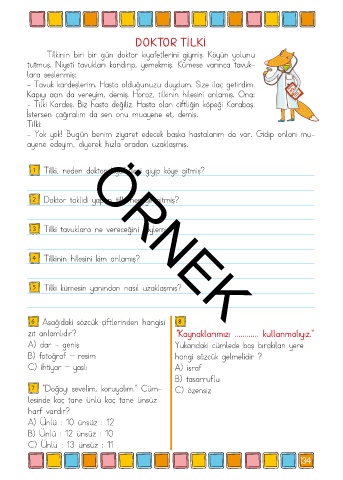 DOKTOR TİLKİ
Tilkinin biri bir gün doktor kıyafetlerini giymiş. Köyün yolunu
tutmuş. Niyeti tavukları kandırıp, yemekmiş. Kümese varınca tavuk-
lara seslenmiş:
- Tavuk kardeşlerim. Hasta olduğunuzu duydum. Size ilaç getirdim.
Kapıyı açın da vereyim, demiş. Horoz, tilkinin hilesini anlamış. Ona:
- Tilki Kardeş. Biz hasta değiliz. Hasta olan çiftliğin köpeği Karabaş.
İstersen çağıralım da sen onu muayene et, demiş.
Tilki:
- Yok yok! Bugün benim ziyaret edecek başka hastalarım da var. Gidip onları mu-
ayene edeyim, diyerek hızla oradan uzaklaşmış.
1 Tilki, neden doktor giyip köye gitmiş?
2 Doktor taklidi yapan tilki
3 Tilki tavuklara ne vereceğini
4 Tilkinin hilesini kim anlamış?
5 Tilki kümesin yanından nasıl uzaklaşmış?
ÖRNEK
6 Aşağıdaki sözcük çiftlerinden hangisi
zıt anlamlıdır?
A) dar - geniş
B) fotoğraf - resim
C) ihtiyar - yaşlı
7 "Doğayı sevelim, koruyalım." Cüm-
lesinde kaç tane ünlü kaç tane ünsüz
harf vardır?
A) Ünlü : 10 ünsüz : 12
B) Ünlü : 12 ünsüz : 10
C) Ünlü : 13 ünsüz : 11
8
"Kaynaklarımızı ............ kullanmalıyız."
Yukarıdaki cümlede boş bırakılan yere
hangi sözcük gelmelidir ?
A) israf
B) tasarruflu
C) özensiz
34